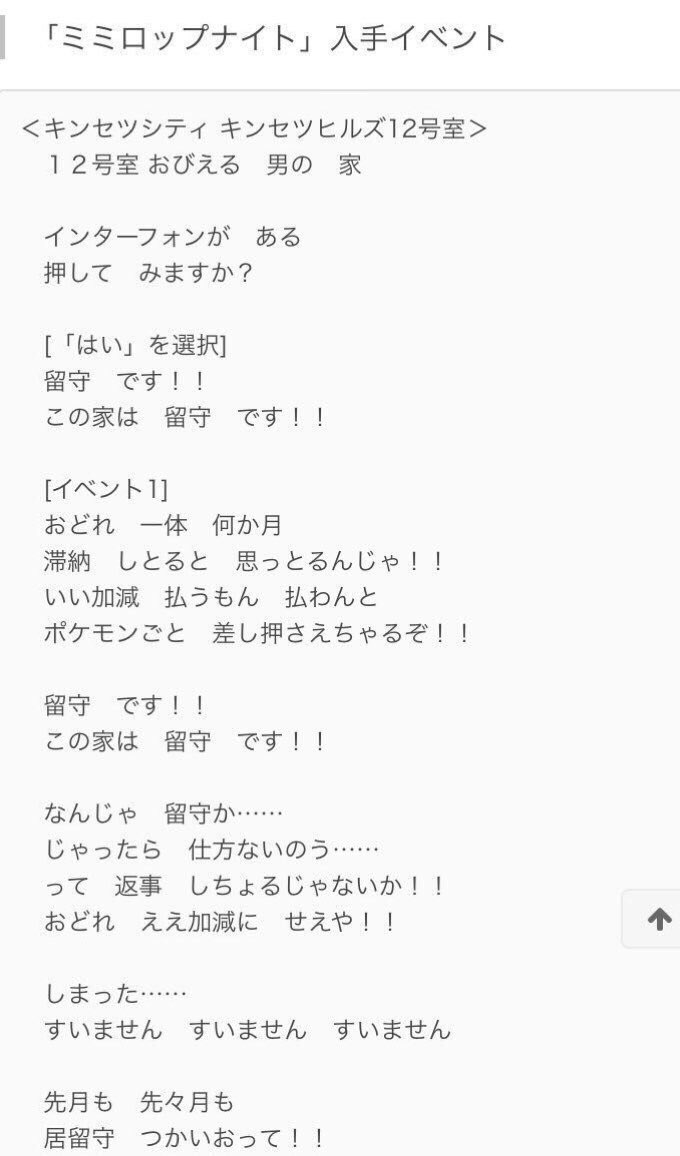 「ミミロップナイト」入手イベント
＜キンセツシティ キンセツヒルズ12号室＞
１２号室 おびえる　男の　家
インターフォンが　ある
押して　みますか？
[「はい」を選択]
留守　です！！
この家は　留守　です！！
[イベント1]
おどれ　一体　何か月
滞納　しとると　思っとるんじゃ！！
いい加減　払うもん　払わんと
ポケモンごと　差し押さえちゃるぞ！！
留守　です！！
この家は　留守　です！！
なんじゃ　留守か……
じゃったら　仕方ないのう……
って　返事　しちょるじゃないか！！
おどれ　ええ加減に　せえや！！
しまった……
すいません　すいません　すいません
先月も　先々月も
居留守　つかいおって！！